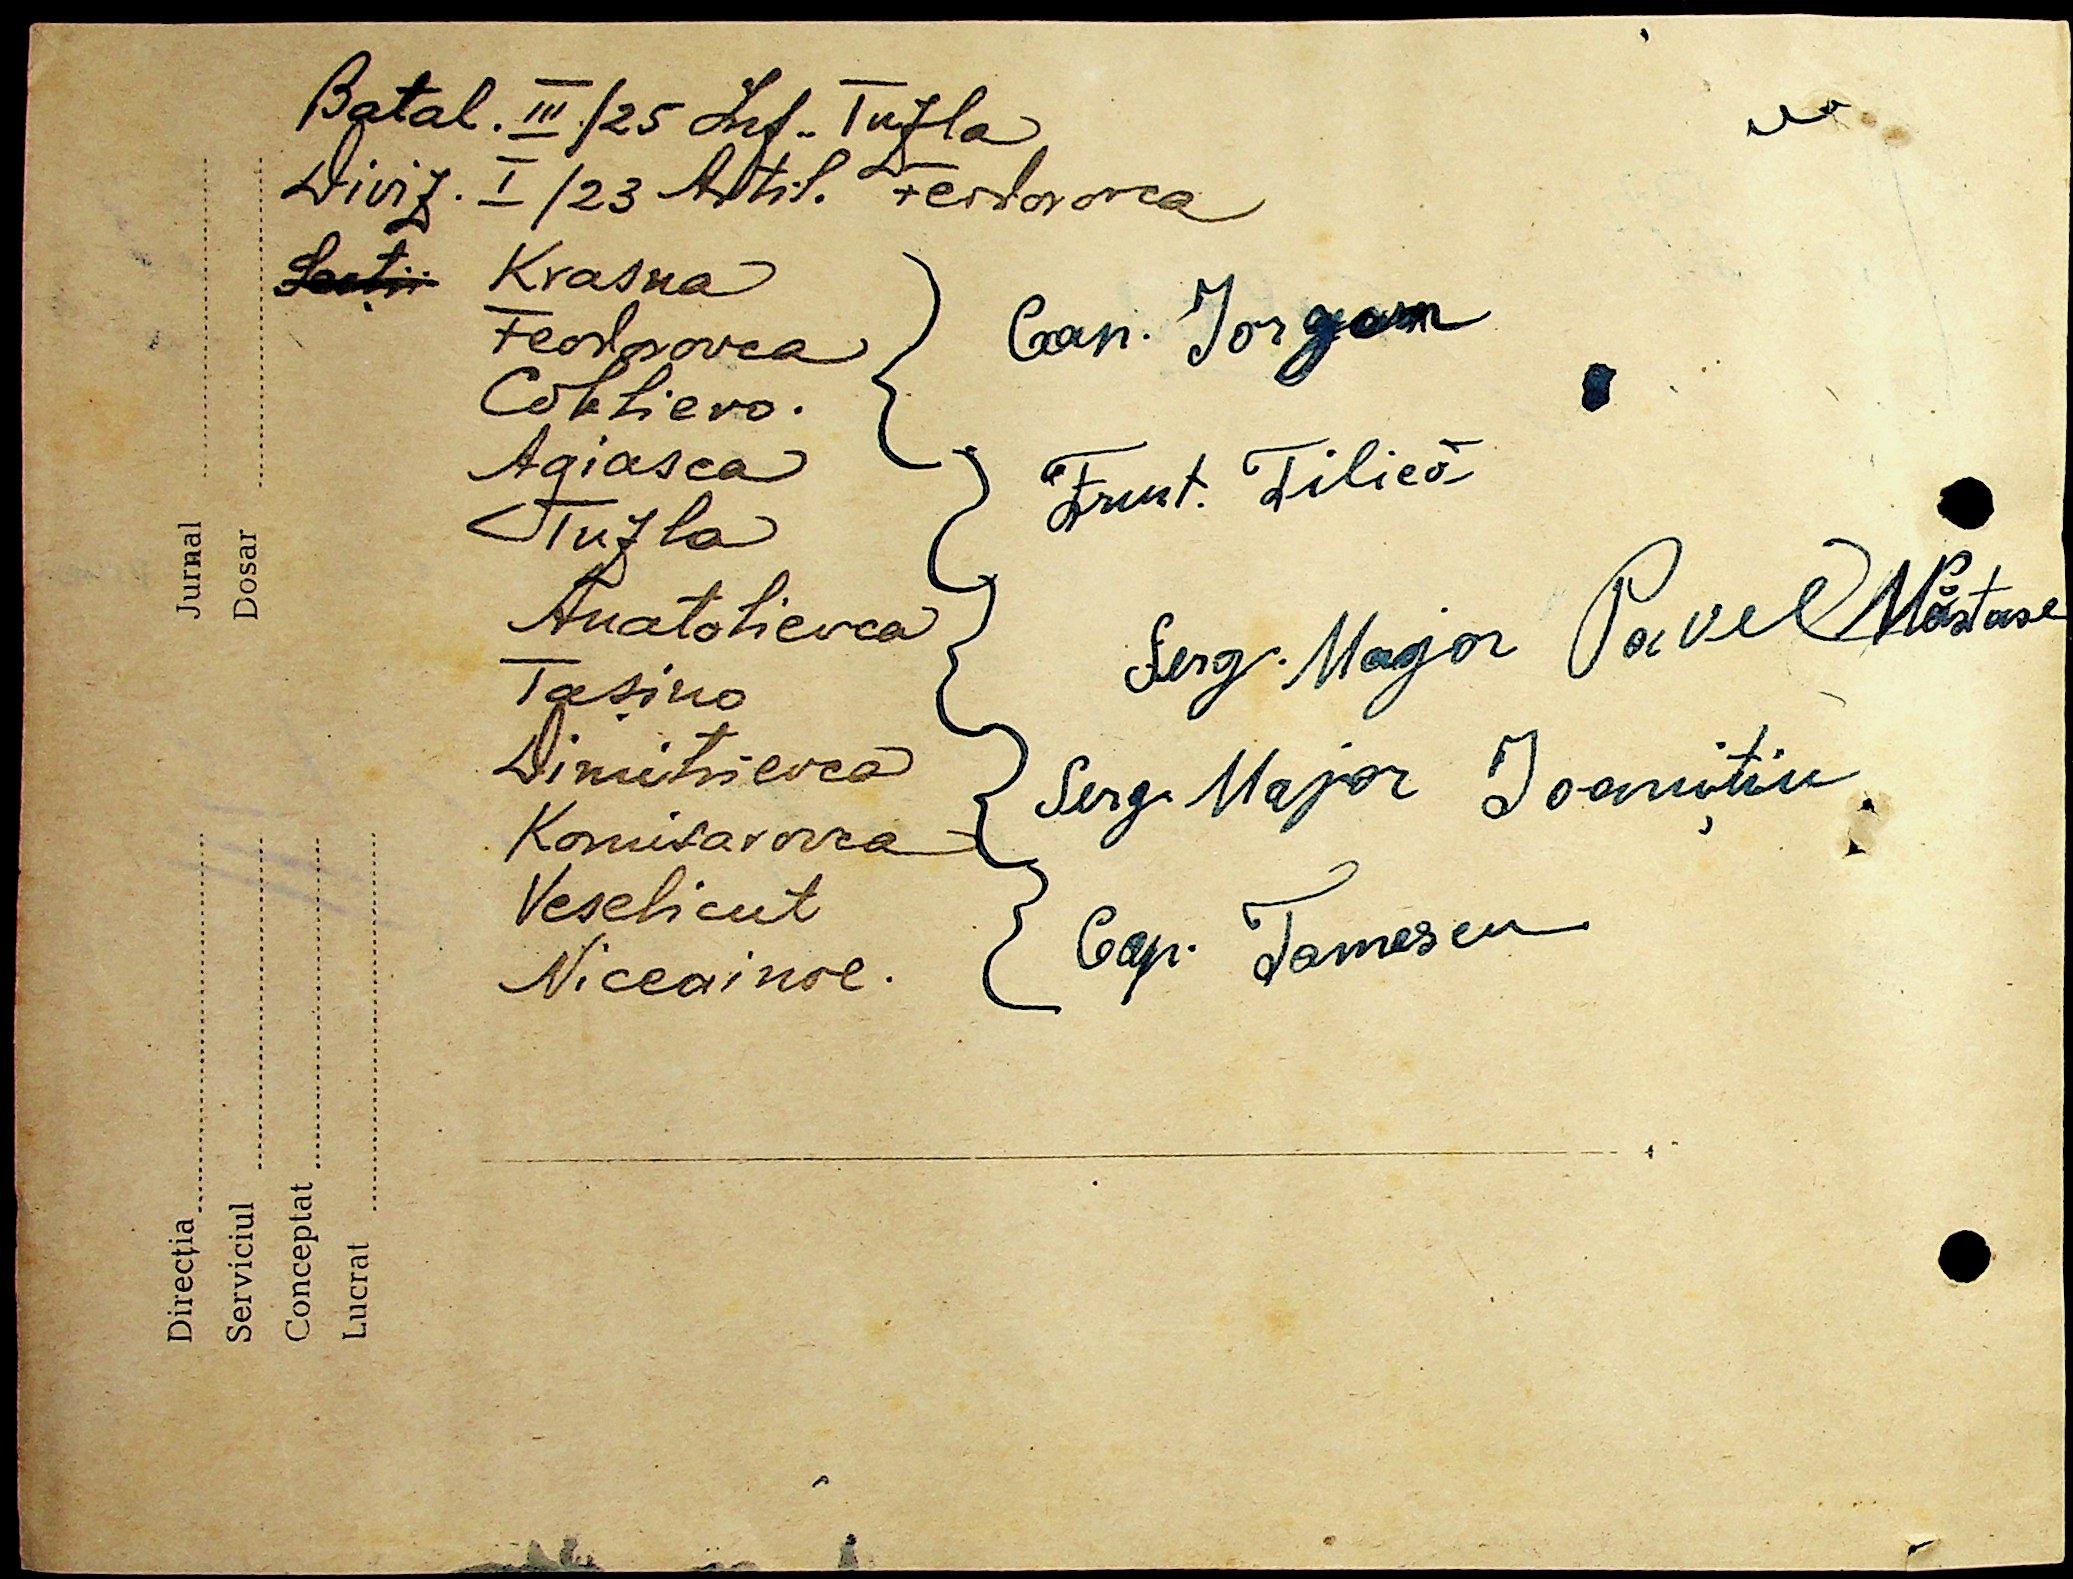 Batal. III/25 Inf. Tuzla
Diviz. I/23 Artil. Feodorovca
Secții Krasna
Feodorovca
Coblievo.
Cap. Iorgam
Agiasca
Tuzla
Frunt. Filică
Anatolievca
Tașino
Serg. Major Pavel Năstase
Dimitrievca
Komisarovca
Serg. Major Ioanițiu
Veselicut
Niceainoe.
Cap. Tomescu
Jurnal
Dosar
Direcția
Serviciul
Conceptat
Lucrat